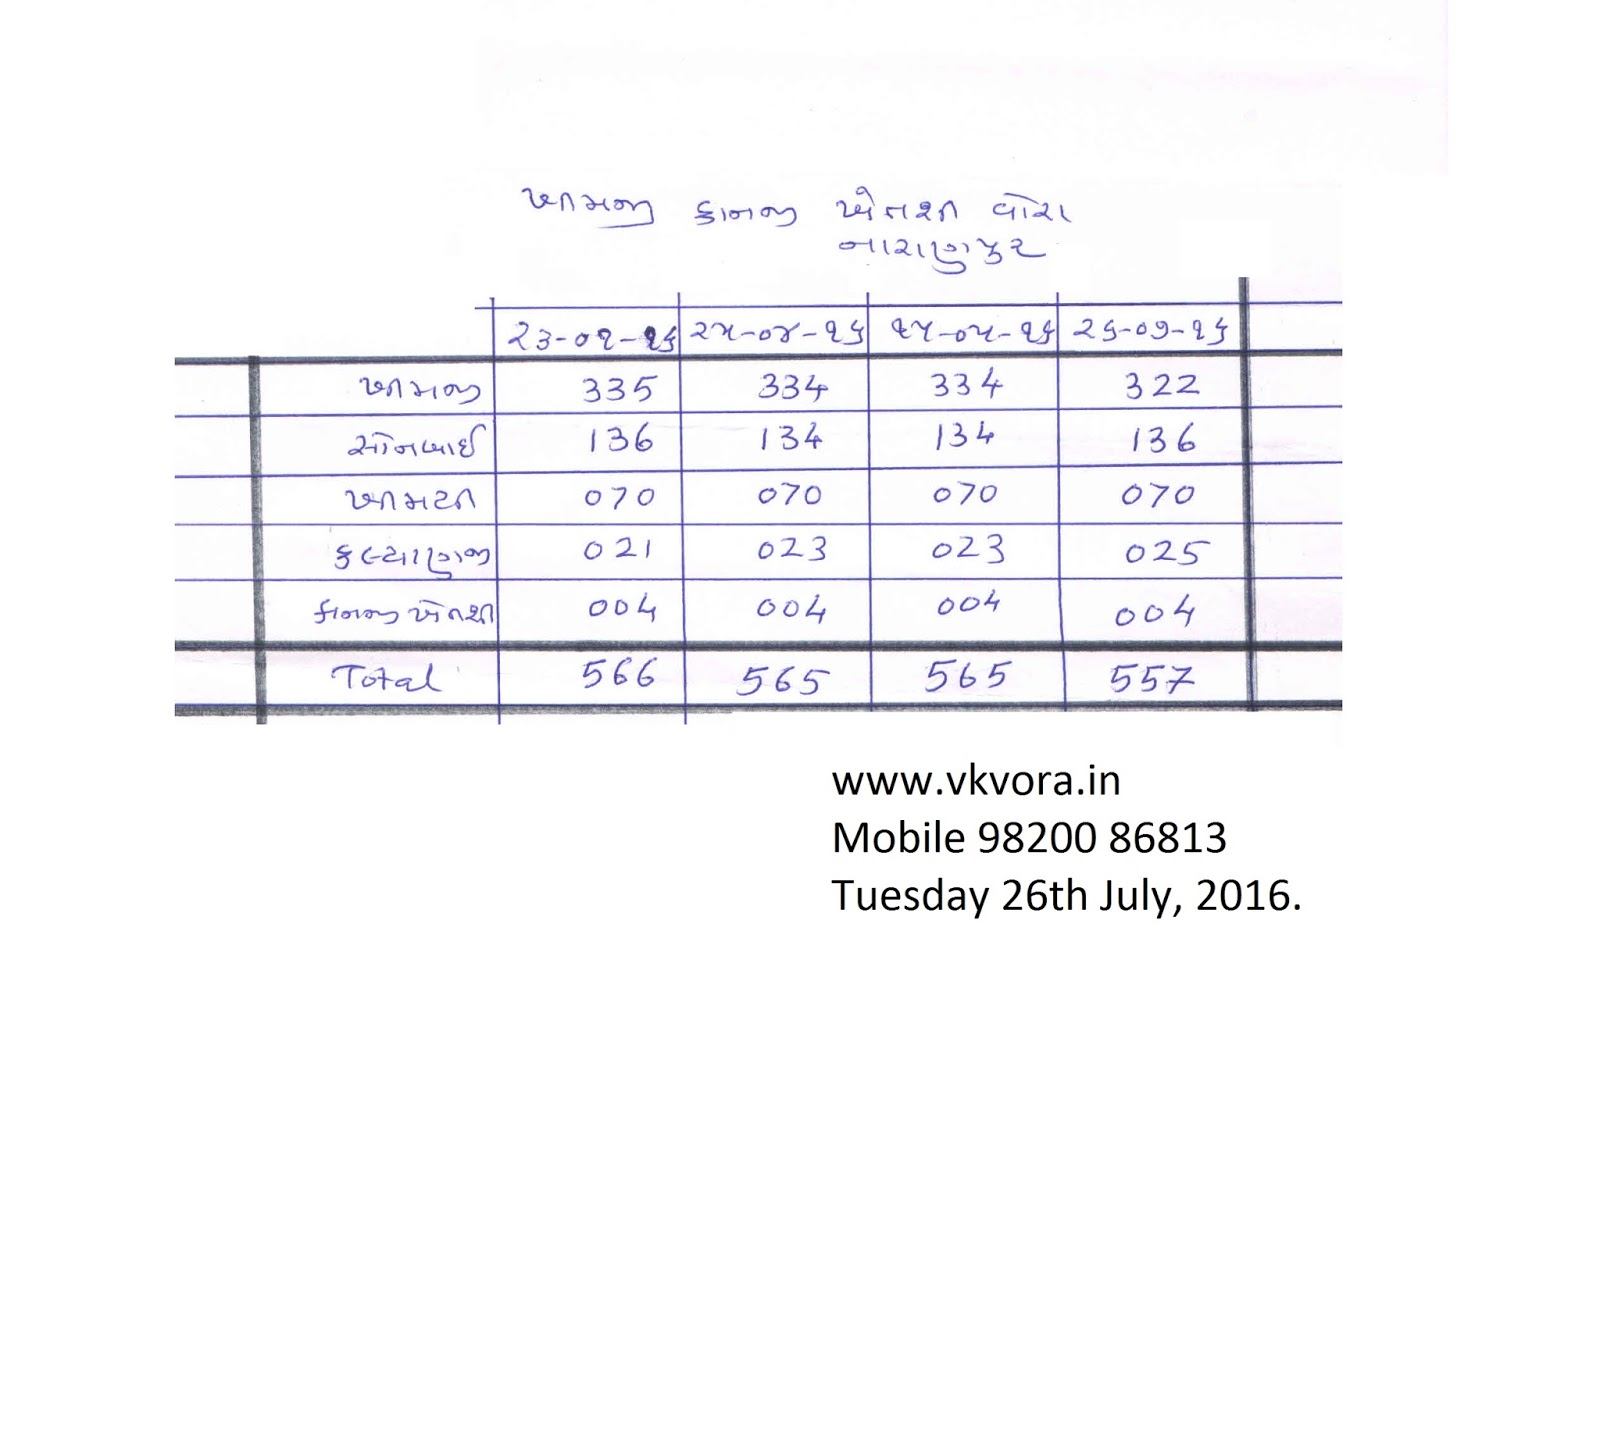 ખીમજી કાનજી ખેતશી વોરા
નારાણપુર
૨૩-૦૧-૧૬ ૨૫-૦૪-૧૬ ૨૫-૦૫-૧૬ ૨૬-૦૭-૧૬
ખીમજી 335 334 334 322
સોનબાઈ 136 134 134 136
ખીમશી 070 070 070 070
કલ્યાણજી 021 023 023 025
કાનજી ખેતશી 004 004 004 004
Total 566 565 565 557
www.vkvora.in
Mobile 98200 86813
Tuesday 26th July, 2016.